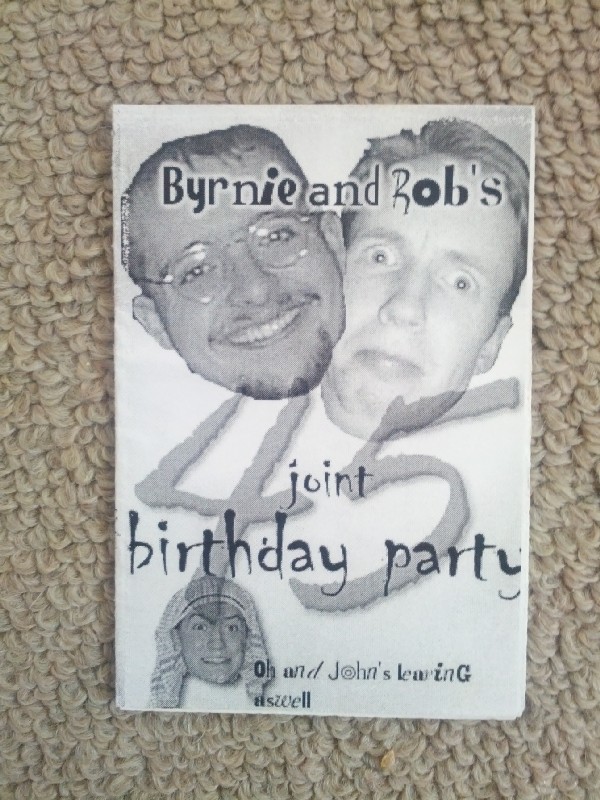 Byrnie and Rob's
45
joint
birthday party
Oh and John's leaving
aswell